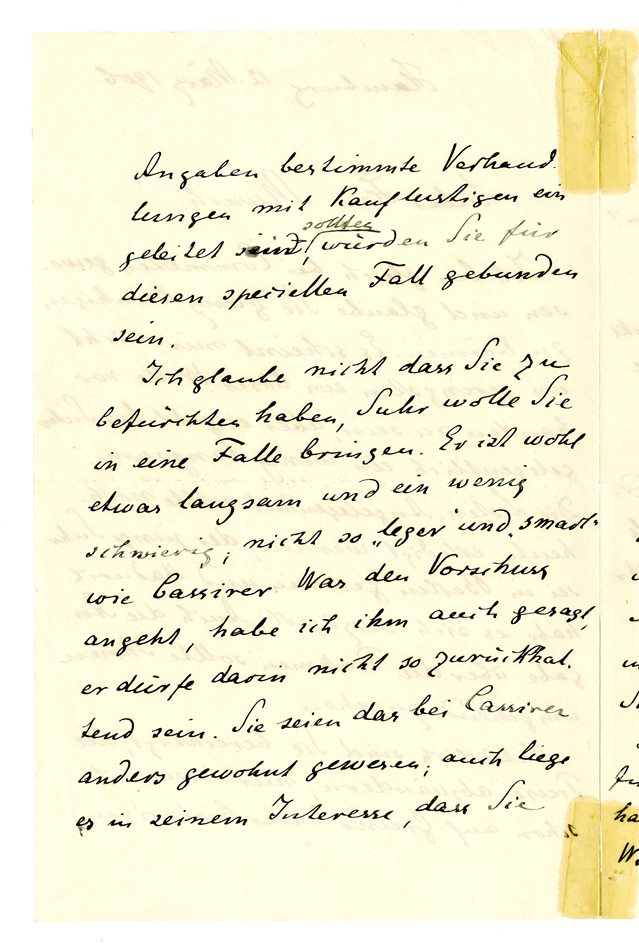 Angaben bestimmte Verhand-
lungen mit Kauflustigen ein
sollten
geleitet sein, würden Sie für
diesen speciellen Fall gebunden
sein.
Ich glaube nicht dass Sie zu
befürchten haben, Suhr wolle Sie
in eine Falle bringen. Er ist wohl
etwas langsam und ein wenig
schwierig, nicht so „leger“ und „smart“
wie Cassirer. Was den Vorschuss
angeht, habe ich ihm auch gesagt,
er dürfe darin nicht so zurückhal-
tend sein. Sie seien das bei Cassirer
anders gewohnt gewesen; auch liege
es in seinem Interesse, dass Sie